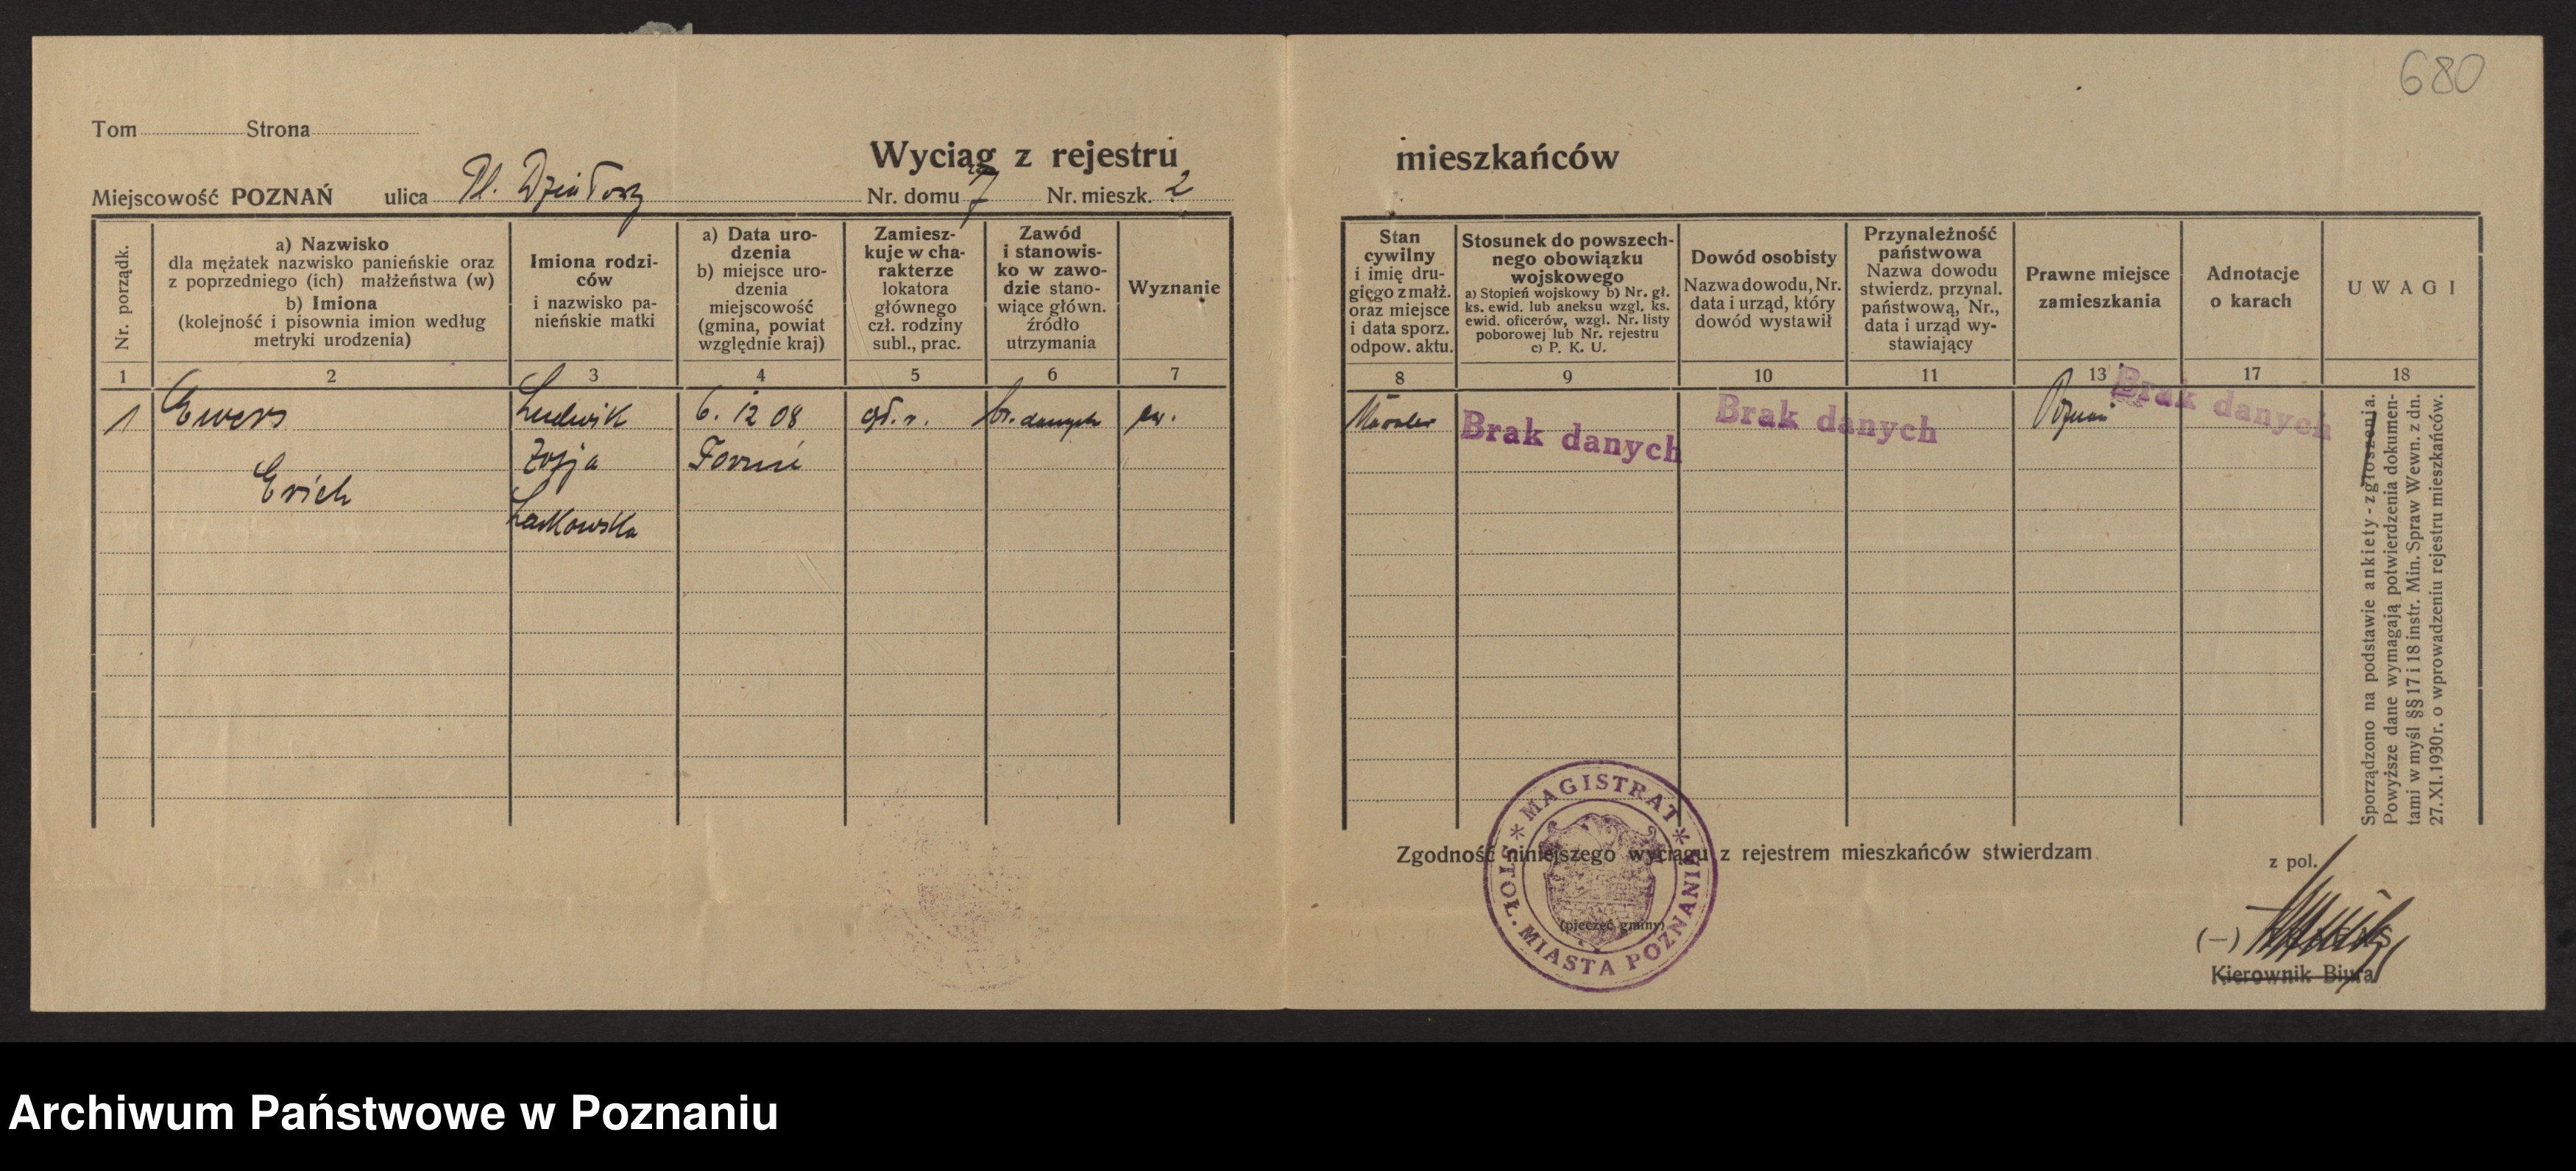 680
Tom Strona
Wyciąg z rejestru mieszkańców
Miejscowość POZNAŃ ulica Pl. Działowy Nr. domu 7 Nr. mieszk. 2
Nr. porządk.
a) Nazwisko
dla mężatek nazwisko panieńskie oraz
z poprzedniego (ich) małżeństwa (w)
b) Imiona
(kolejność i pisownia imion według
metryki urodzenia)
Imiona rodzi-
ców
i nazwisko pa-
nieńskie matki
a) Data uro-
dzenia
b) miejsce uro-
dzenia
miejscowość
(gmina, powiat
względnie kraj)
Zamiesz-
kuje w cha-
rakterze
lokatora
głównego
czł. rodziny
subl., prac.
Zawód
i stanowis-
ko w zawo-
dzie stano-
wiące główn.
źródło
utrzymania
Wyznanie
Stan
cywilny
i imię dru-
giego z małż.
oraz miejsce
i data sporz.
odpow. aktu.
Stosunek do powszech-
nego obowiązku
wojskowego
a) Stopień wojskowy b) Nr. gł.
ks. ewid. lub aneksu wzgl. ks.
ewid. oficerów, wzgl. Nr. listy
poborowej lub Nr. rejestru
c) P. K. U.
Dowód osobisty
Nazwa dowodu, Nr.
data i urząd, który
dowód wystawił
Przynależność
państwowa
Nazwa dowodu
stwierdz. przynal.
państwową, Nr.,
data i urząd wy-
stawiający
Prawne miejsce
zamieszkania
Adnotacje
o karach
UWAGI
1 2 3 4 5 6 7 8 9 10 11 13 17 18
1 Ewers Ludwik 6. 12 08 br. danych ew. Brak danych Brak danych Poznań Brak danych
Zofja Toruń
Erich
Laskowska
Sporządzono na podstawie ankiety-zgłoszenia.
Powyższe dane wymagają potwierdzenia dokumen-
tami w myśl §§ 17 i 18 instr. Min. Spraw Wewn. z dn.
27.XI.1930 r. o wprowadzeniu rejestru mieszkańców.
Zgodność niniejszego wyciągu z rejestrem mieszkańców stwierdzam
z pol.
* MAGISTRAT * STOŁ. MIASTA POZNANIA
(pieczęć gminy)
(—)
Kierownik Biura
Archiwum Państwowe w Poznaniu